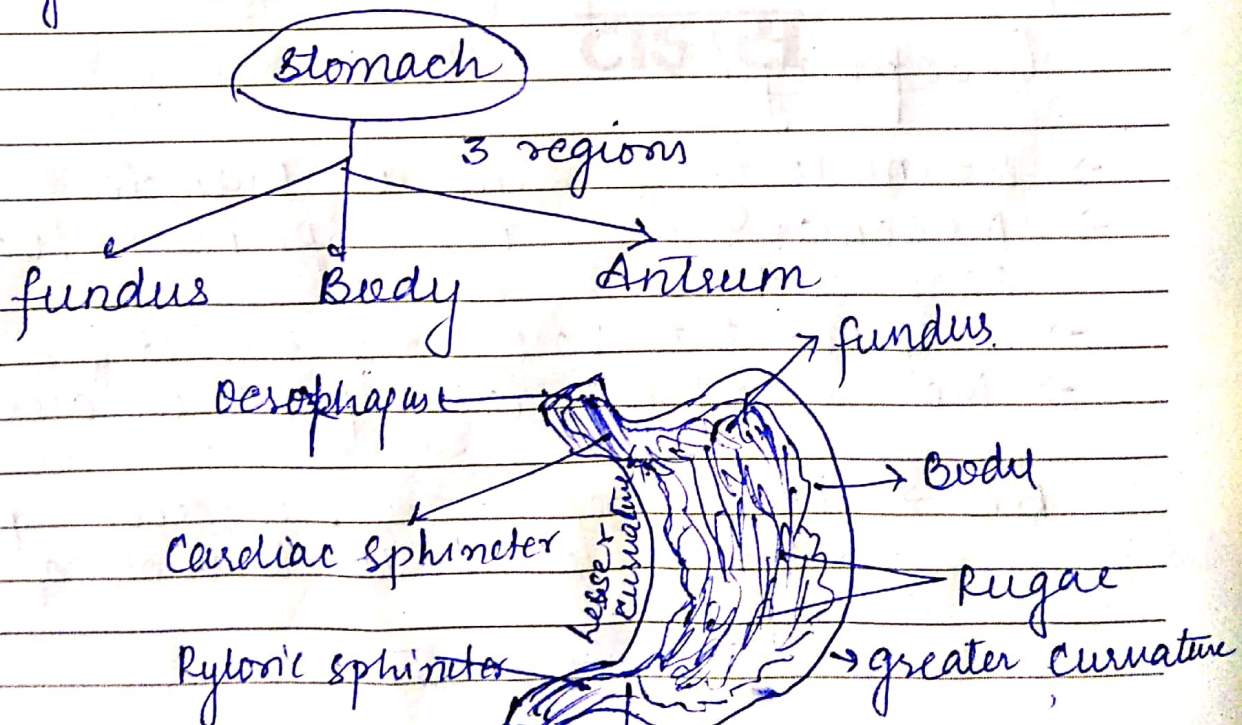 Stomach
3 regions
fundus Body Antrum
fundus.
Oesophagus
Body
Cardiac Sphincter
Lesser
Curvature
Rugae
Pyloric Sphincter
greater Curvature